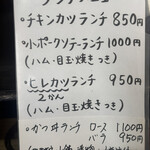 ランチメニュー
・チキンカツランチ 850円
・小ポークソテーランチ1000円
(ハム・目玉焼きつき)
・ヒレカツランチ 950円
2かん
(ハム・目玉焼きつき)
・カツ丼ランチ ロース 1100円
バラ 950円